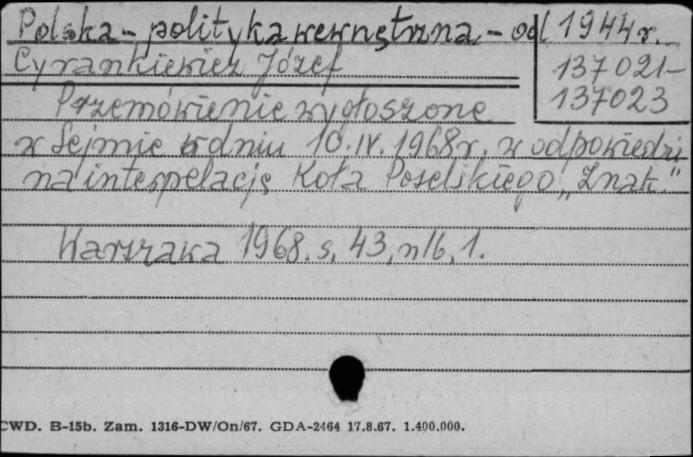 Polska - polityka wewnętrzna - od 1944 r.
Cyrankiewicz Józef
137021-
137023
Przemówienie wygłoszone
w Sejmie w dniu 10.IV.1968 r. w odpowiedzi
na interpelację Koła Poselskiego „Znak."
Warszawa 1968. s. 43, nlb, 1.
CWD. B-15b. Zam. 1316-DW/On/67. GDA-2464 17.8.67. 1.400.000.